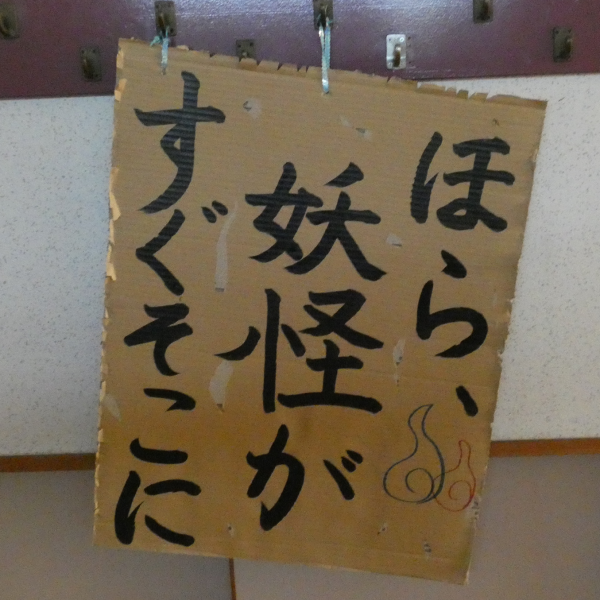 ほら、
妖怪が
すぐそこに